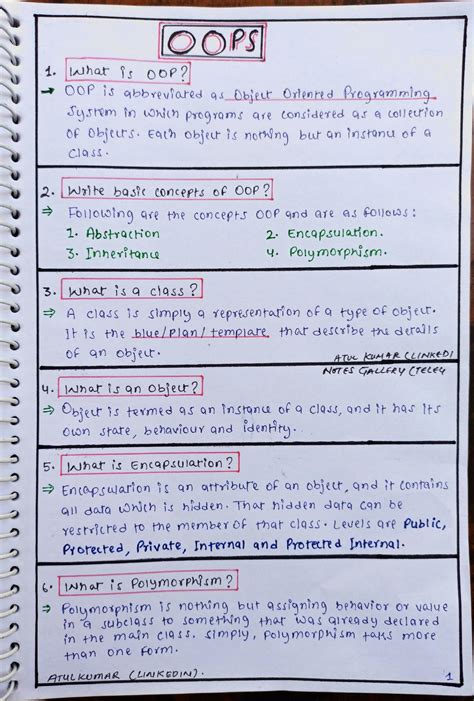 OOPS
1. What is OOP?
→ OOP is abbreviated as Object Oriented Programming
System in which programs are considered as a collection
of Objects. Each object is nothing but an instance of a
class.
2. Write basic concepts of OOP?
⇒ Following are the concepts OOP and are as follows:
1. Abstraction 2. Encapsulation.
3. Inheritance 4. Polymorphism.
3. What is a class?
⇒ A class is simply a representation of a type of object.
It is the blue/plan/template that describe the details
of an object.
ATUL KUMAR (LINKEDI
NOTES GALLERY (TELEG
4. What is an Object?
⇒ Object is termed as an instance of a class, and it has its
own state, behaviour and identity.
5. What is Encapsulation?
⇒ Encapsulation is an attribute of an object, and it contains
all data which is hidden. That hidden data can be
restricted to the member of that class. Levels are Public,
Protected, Private, Internal and Protected Internal.
6. What is Polymorphism?
⇒ Polymorphism is nothing but assigning behavior or value
in a subclass to something that was already declared
in the main class. Simply, polymorphism takes more
than one form.
ATULKUMAR (LINKEDIN).
1